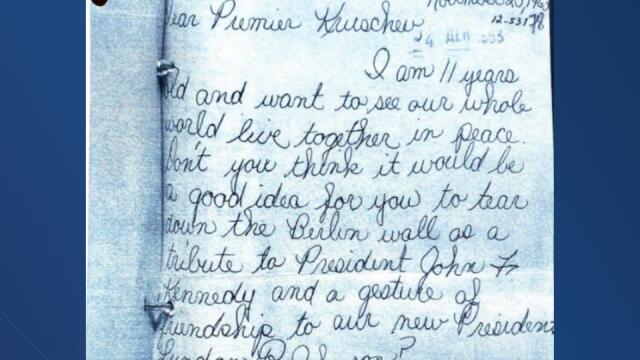 November 25, 1963
12-53178
ear Premier Kruschev
4 ДЕК 963
I am 11 years
ld and want to see our whole
world live together in peace.
Don't you think it would be
a good idea for you to tear
down the Berlin wall as a
tribute to President John F.
Kennedy and a gesture of
friendship to our new President